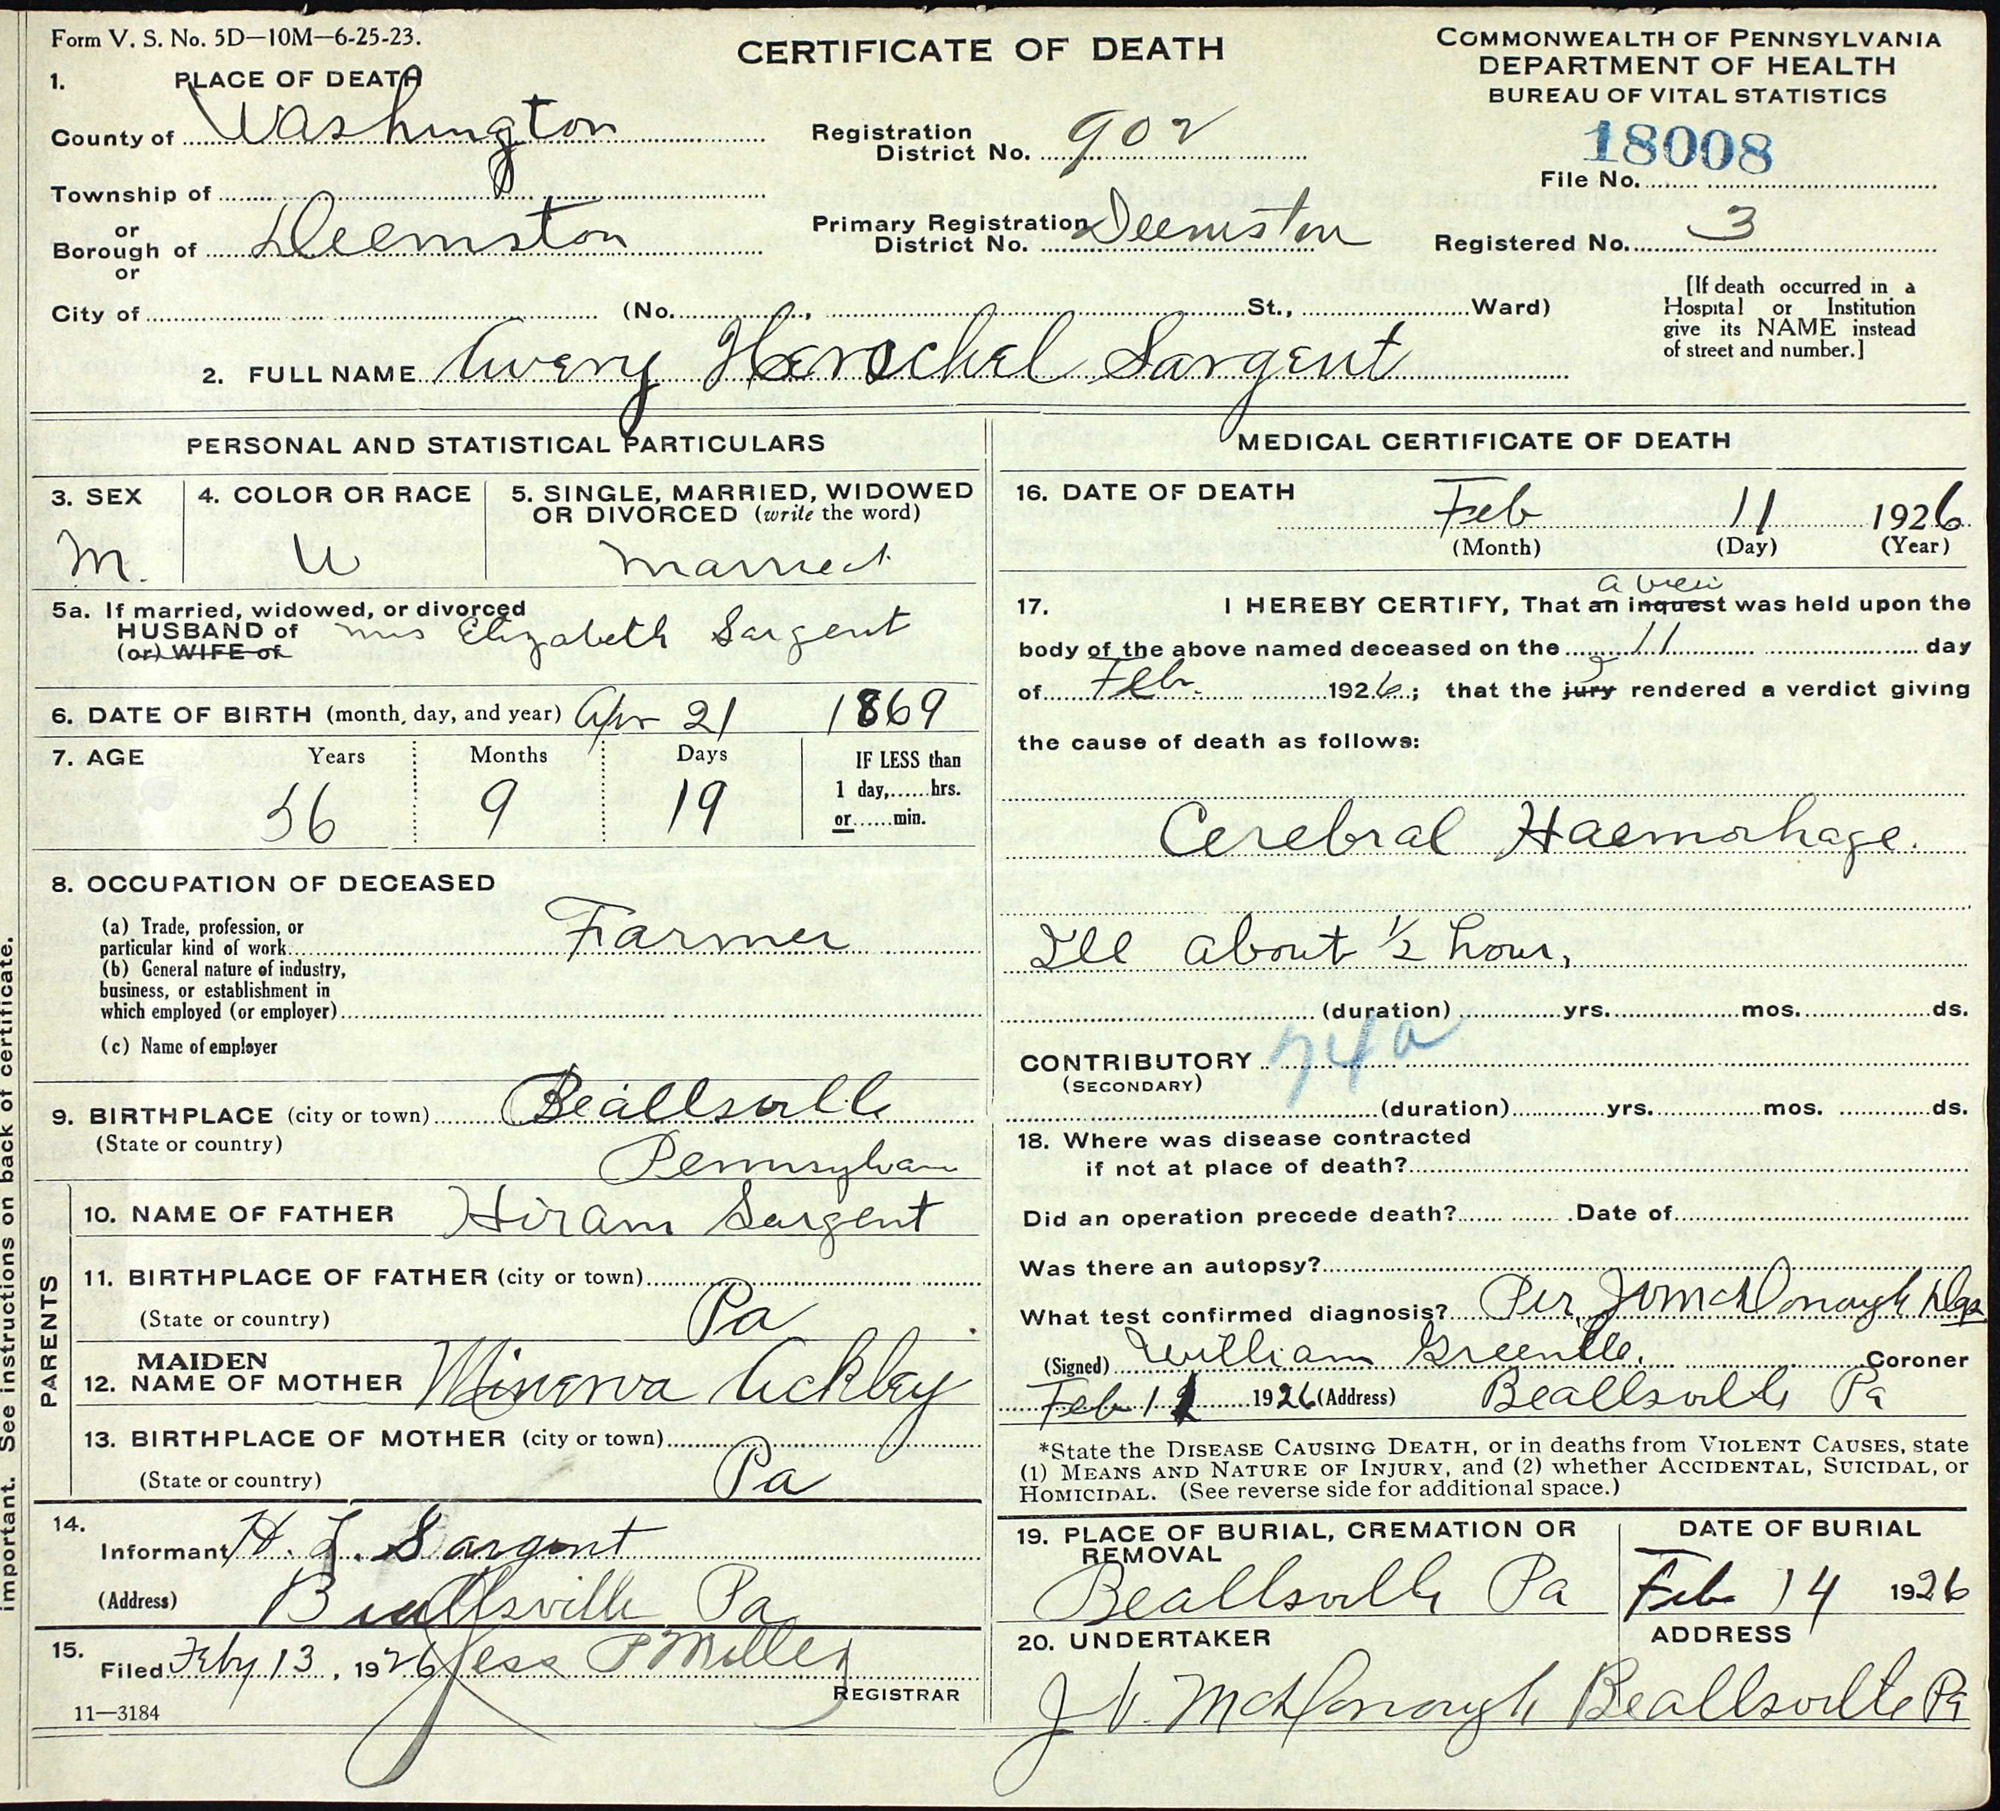 Form V. S. No. 5D—10M—6-25-23.
CERTIFICATE OF DEATH
COMMONWEALTH OF PENNSYLVANIA
DEPARTMENT OF HEALTH
BUREAU OF VITAL STATISTICS
1. PLACE OF DEATH
County of Washington
Registration District No. 902
18008
File No.
Township of
or
Borough of Deemston
Primary Registration District No. Deemston
Registered No. 3
or
City of (No. , St., Ward)
[If death occurred in a
Hospital or Institution
give its NAME instead
of street and number.]
2. FULL NAME Avery Herschel Sargent
PERSONAL AND STATISTICAL PARTICULARS
3. SEX
M.
4. COLOR OR RACE
W
5. SINGLE, MARRIED, WIDOWED
OR DIVORCED (write the word)
Married
5a. If married, widowed, or divorced
HUSBAND of Mrs Elizabeth Sargent
(or) WIFE of
6. DATE OF BIRTH (month, day, and year) Apr 21 1869
7. AGE Years Months Days
56 9 19
IF LESS than
1 day,......hrs.
or......min.
8. OCCUPATION OF DECEASED
(a) Trade, profession, or
particular kind of work Farmer
(b) General nature of industry,
business, or establishment in
which employed (or employer)
(c) Name of employer
9. BIRTHPLACE (city or town) Beallsville
(State or country) Pennsylvan
PARENTS
10. NAME OF FATHER Hiram Sargent
11. BIRTHPLACE OF FATHER (city or town)
(State or country) Pa
12. MAIDEN NAME OF MOTHER Minerva Ackley
13. BIRTHPLACE OF MOTHER (city or town)
(State or country) Pa
14.
Informant H. L. Sargent
(Address) Beallsville Pa
15.
Filed Feby 13, 1926 Jess P Miller
REGISTRAR
11—3184
MEDICAL CERTIFICATE OF DEATH
16. DATE OF DEATH Feb 11 1926
(Month) (Day) (Year)
a view
17. I HEREBY CERTIFY, That an inquest was held upon the
body of the above named deceased on the 11 day
of Feb. 1926; that the jury rendered a verdict giving
the cause of death as follows:
Cerebral Haemorhage.
Ill about 1/2 hour,
(duration) yrs. mos. ds.
CONTRIBUTORY 74a
(SECONDARY)
(duration) yrs. mos. ds.
18. Where was disease contracted
if not at place of death?
Did an operation precede death? Date of
Was there an autopsy?
What test confirmed diagnosis? Per, J V McDonough
(Signed) William Greenlee. Coroner
Feb 11 1926 (Address) Beallsville Pa
*State the DISEASE CAUSING DEATH, or in deaths from VIOLENT CAUSES, state
(1) MEANS AND NATURE OF INJURY, and (2) whether ACCIDENTAL, SUICIDAL, or
HOMICIDAL. (See reverse side for additional space.)
19. PLACE OF BURIAL, CREMATION OR
REMOVAL
Beallsville Pa
DATE OF BURIAL
Feb 14 1926
20. UNDERTAKER
ADDRESS
J V. McDonough Beallsville Pa
important. See instructions on back of certificate.